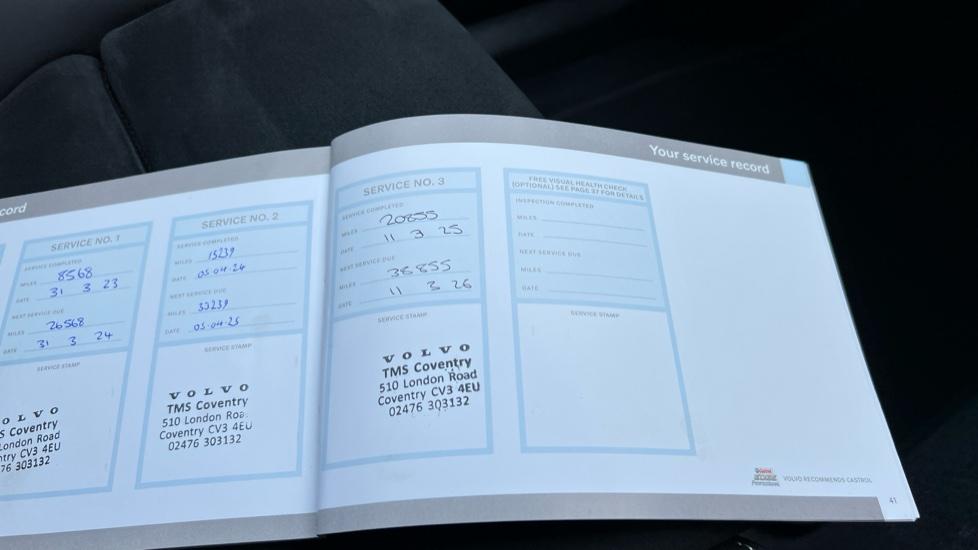 cord
SERVICE NO. 1
SERVICE COMPLETED
MILES 8568
DATE 31 3 23
NEXT SERVICE DUE
MILES 26568
DATE 31 3 24
SERVICE STAMP
O L V O
S Coventry
London Road
ntry CV3 4EU
76 303132
SERVICE NO. 2
SERVICE COMPLETED
MILES 15239
DATE 05.04.24
NEXT SERVICE DUE
MILES 33239
DATE 05.04.25
SERVICE STAMP
V O L V O
TMS Coventry
510 London Roa
Coventry CV3 4EU
02476 303132
Your service record
SERVICE NO. 3
SERVICE COMPLETED
MILES 20855
DATE 11 3 25
NEXT SERVICE DUE
MILES 38855
DATE 11 3 26
SERVICE STAMP
V O L V O
TMS Coventry
510 London Road
Coventry CV3 4EU
02476 303132
FREE VISUAL HEALTH CHECK
(OPTIONAL) SEE PAGE 37 FOR DETAILS
INSPECTION COMPLETED
MILES
DATE
NEXT SERVICE DUE
MILES
DATE
SERVICE STAMP
Castrol
VOLVO RECOMMENDS CASTROL
41